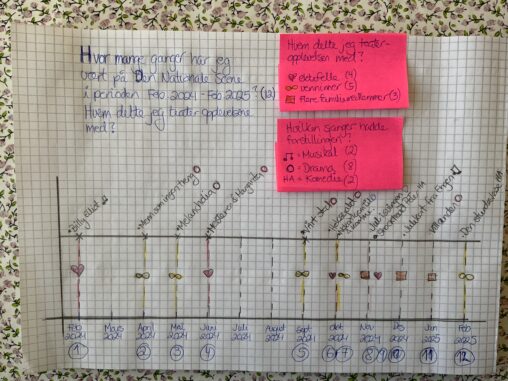 Hvor mange ganger har jeg
vært på Den Nationale Scene
i perioden Feb 2024 - Feb 2025? (12)
Hvem delte jeg teateropplevelsene
med?
Hvem delte jeg teater-
opplevelsen med?
ektefelle (4)
venninner (5)
flere familiemedlemmer (3)
Hvilken sjanger hadde
forestillingen?
= Musikal (2)
= Drama (8)
HA = Komedie (2)
Billy Elliot
Melancholia
Mesteren og Margarita
Jul i
Den stundesløse HA
Feb 2024
Mars 2024
April 2024
Mai 2024
Juni 2024
Juli 2024
August 2024
Sept 2024
Okt 2024
Nov 2024
Des 2024
Jan 2025
Feb 2025
1 2 3 4 5 6 7 8 9 10 11 12